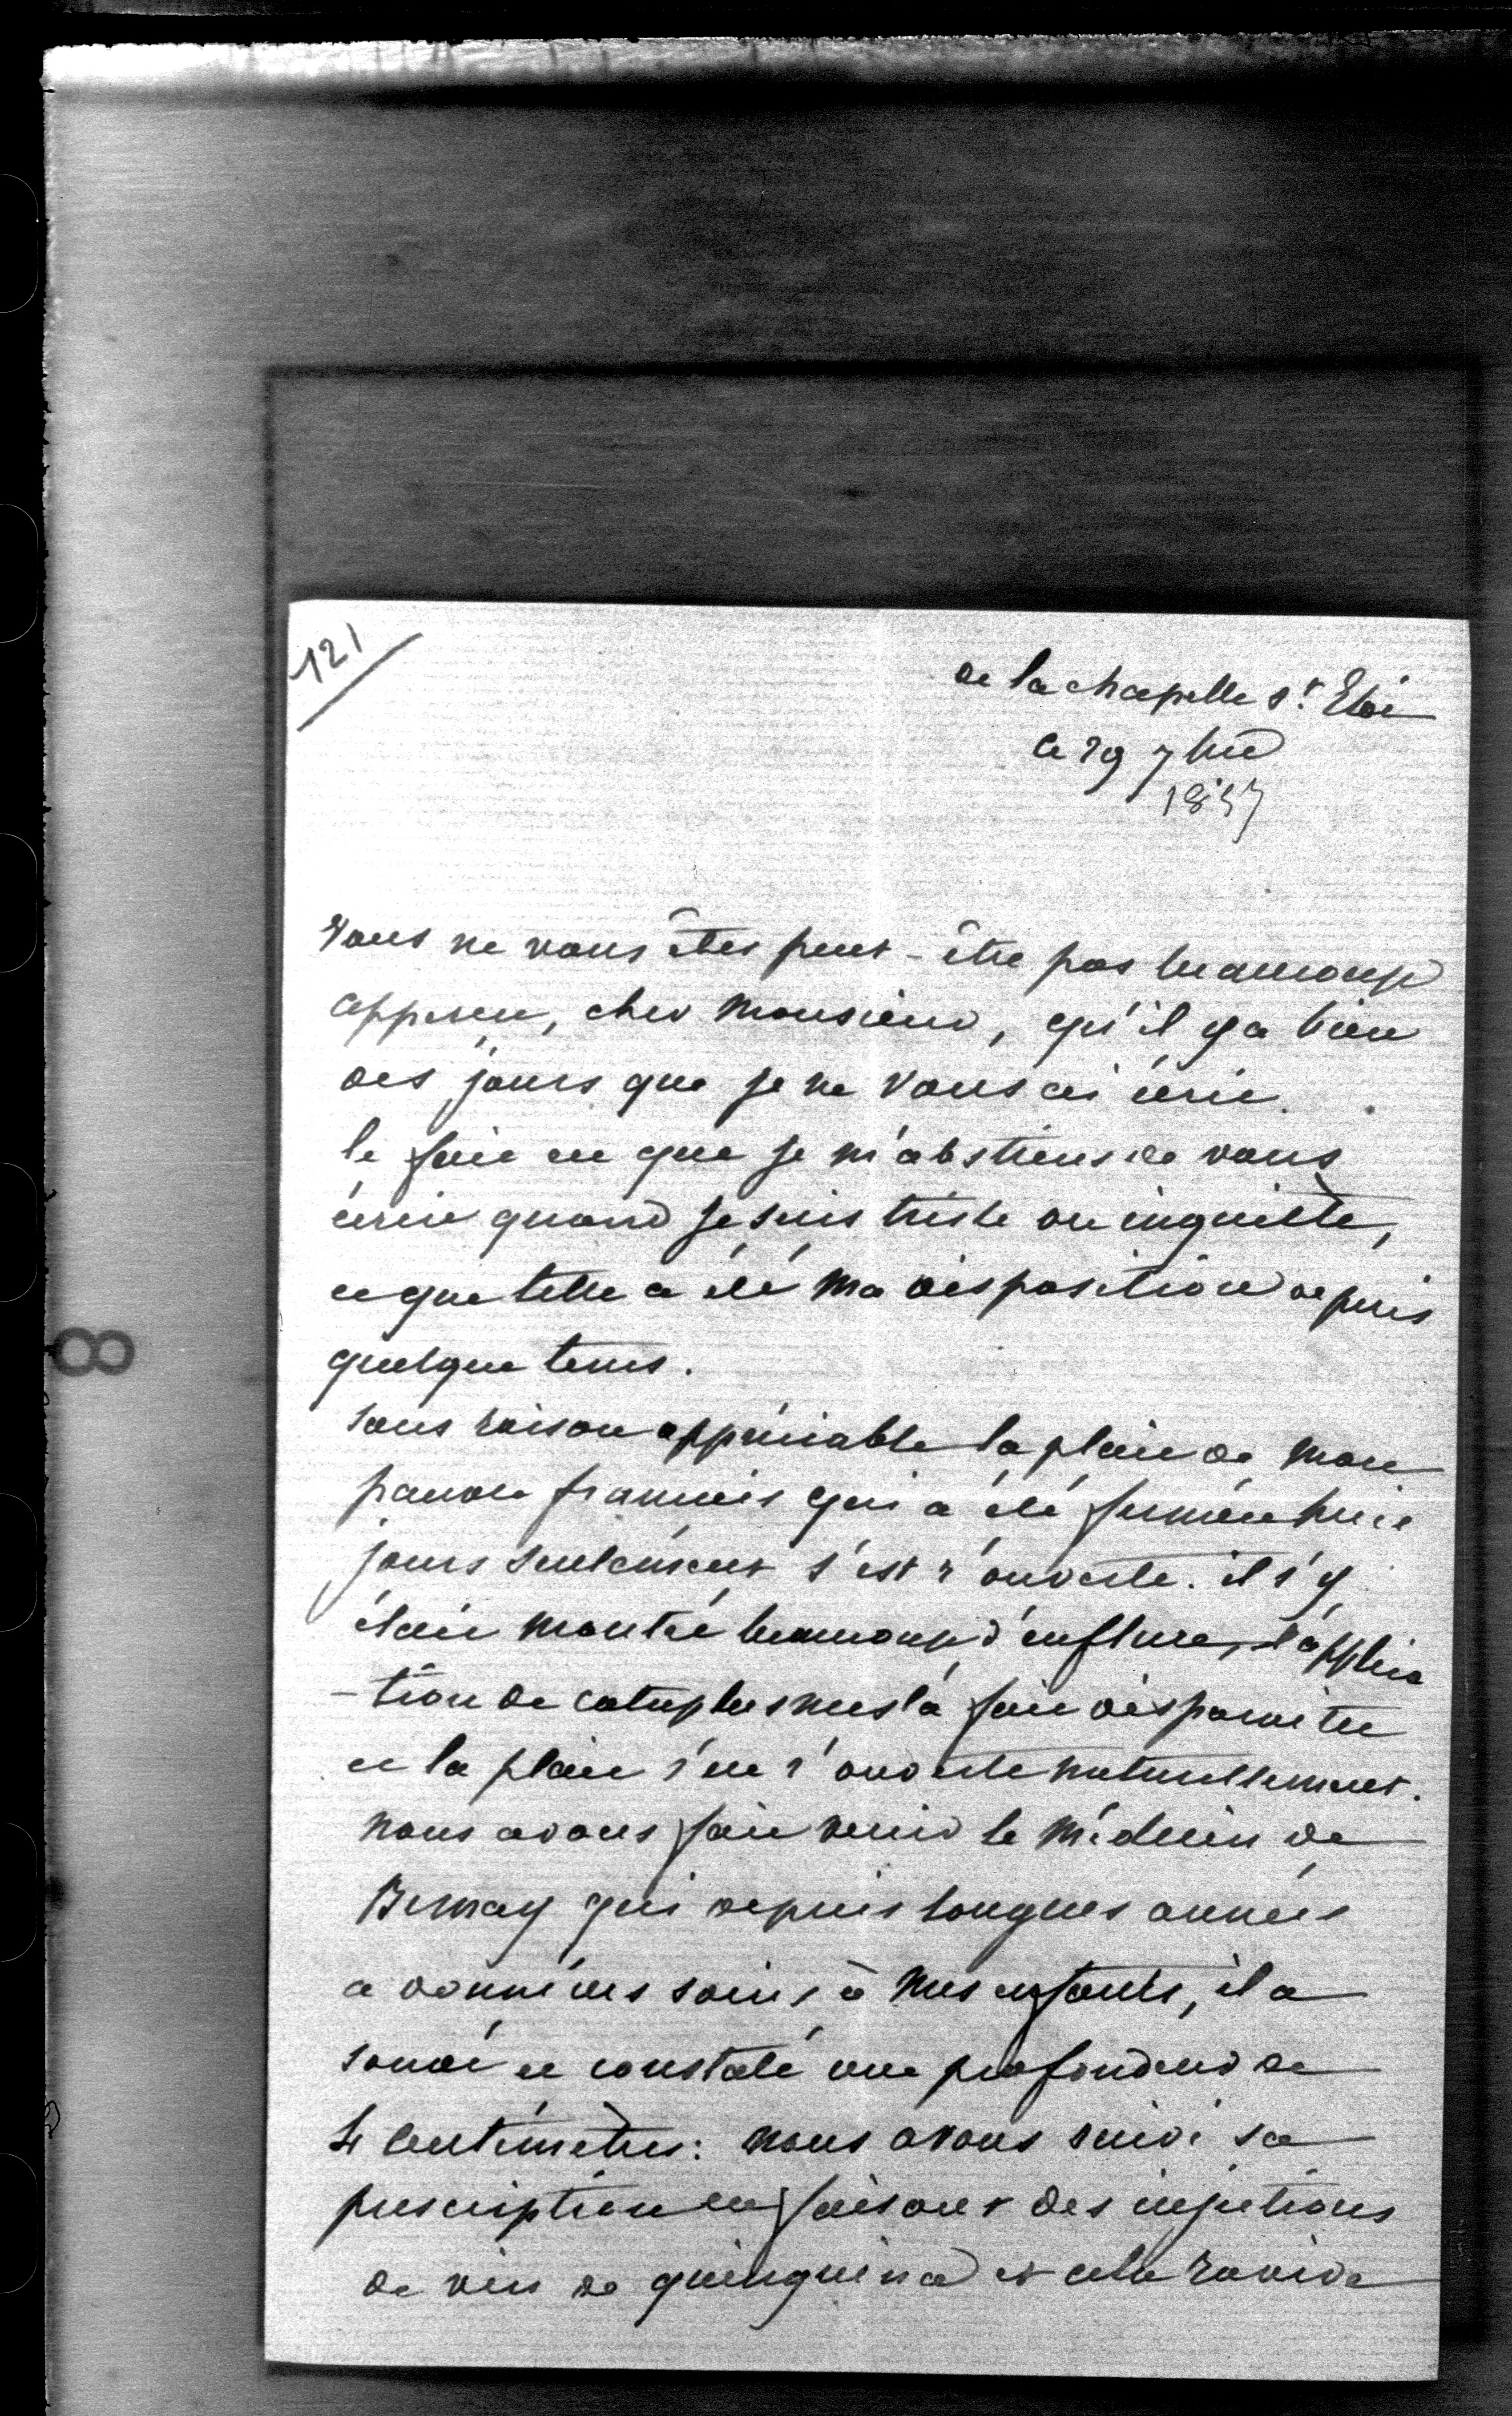 121
de la chapelle St Eloi
ce 29 7bre
1857
Vous ne vous êtes peut-être pas beaucoup
apperçu, cher Monsieur, qu'il y a bien
des jours que je ne vous ai écrit.
le fait est que je m'abstiens de vous
écrire quand je suis triste ou inquiète,
et que telle a été ma disposition depuis
quelque tems.
sans raison appréciable la plaie de mon
pauvre francois qui a été fermée huit
jours seulement s'est r'ouverte. il s'y
était montré beaucoup d'enflure, l'applica
-tion de cataplasmes l'a fait disparaitre
et la plaie s'est r'ouverte naturellement.
nous avons fait venir le médecin de
Bernay qui depuis longues années
a donné des soins à mes enfants, il a
sondé et constaté une profondeur de
4 centimètres: nous avons suivi sa
prescription en faisant des injections
de vin de quinquina et cela ravive